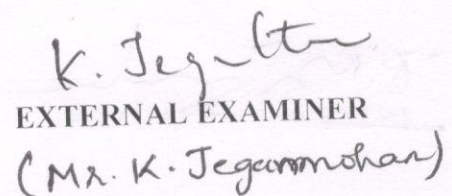 K. Jeg
EXTERNAL EXAMINER
(Mr. K. Jeganmohan)